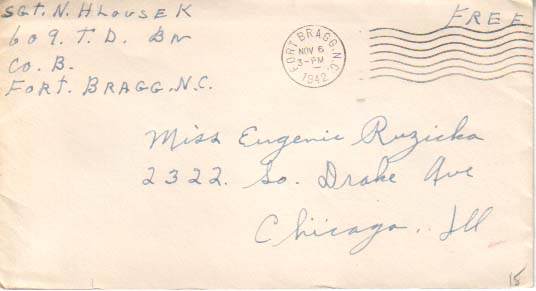 SGT. N. HLOUSEK
609. T. D. BN
CO. B.
FORT. BRAGG. N.C.
FREE
FORT BRAGG. N.C.
NOV 6
3-PM
1942
Miss Eugenie Ruzicka
2322. So. Drake Ave
Chicago. Ill
15